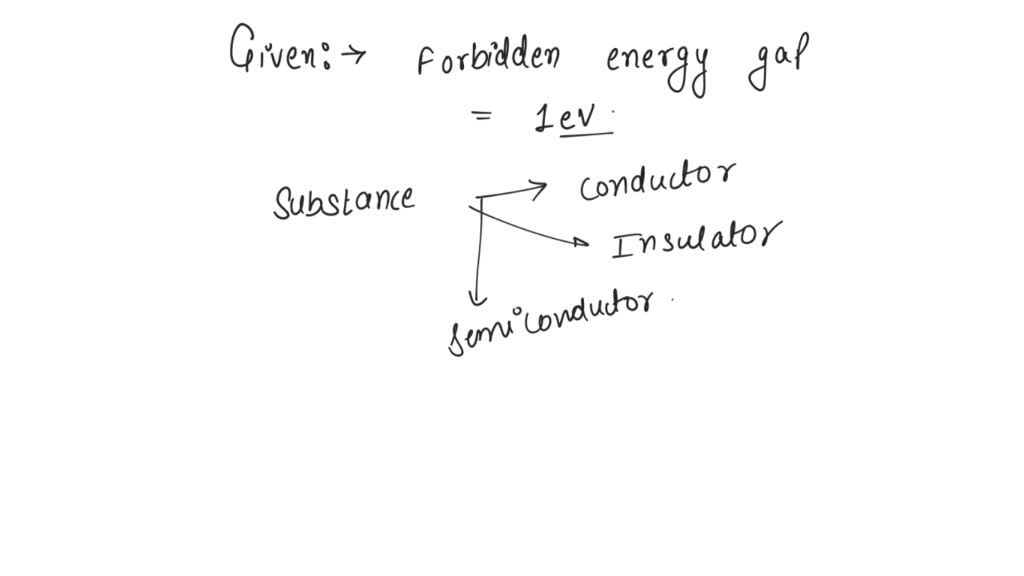 Given:→ Forbidden energy gap
= 1ev
Substance → Conductor
Insulator
Semiconductor